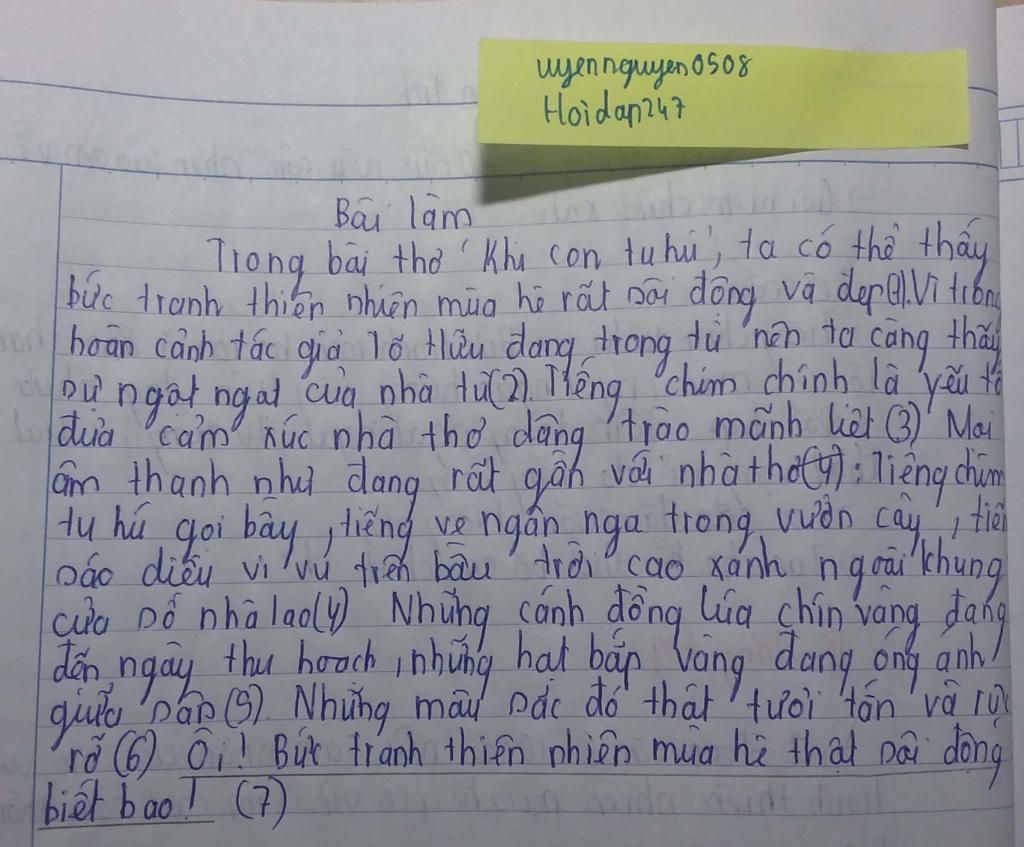 uyennguyen0508
Hoidap247
Bài làm
Trong bài thơ "Khi con tu hú", ta có thể thấy
bức tranh thiên nhiên mùa hè rất sôi động và đẹp(1). Vì trong
hoàn cảnh tác giả Tố Hữu đang trong tù nên ta càng thấy
sự ngột ngạt của nhà tù(2). Tiếng chim chính là yếu tố
đưa cảm xúc nhà thơ dâng trào mãnh liệt (3) Mọi
âm thanh như đang rất gần với nhà thơ(4): Tiếng chim
tu hú gọi bầy, tiếng ve ngân nga trong vườn cây, tiến
sáo diều vi vu trên bầu trời cao xanh ngoài khung
cửa sổ nhà lao(4) Những cánh đồng lúa chín vàng đang
đến ngày thu hoạch, những hạt bắp vàng đang óng ánh
giữa sân(5) Những màu sắc đó thật tươi tắn và rực
rỡ (6) Ôi! Bức tranh thiên nhiên mùa hè thật sôi động
biết bao! (7)